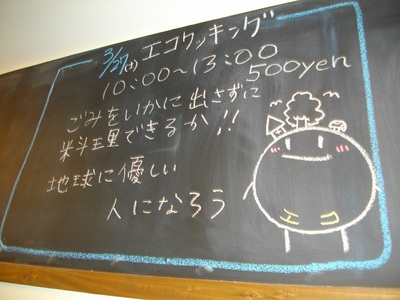 3/27(土)エコクッキング
10:00~13:00
500yen
ごみをいかに出さずに
料理できるか!!
地球に優しい
人になろう
エコ